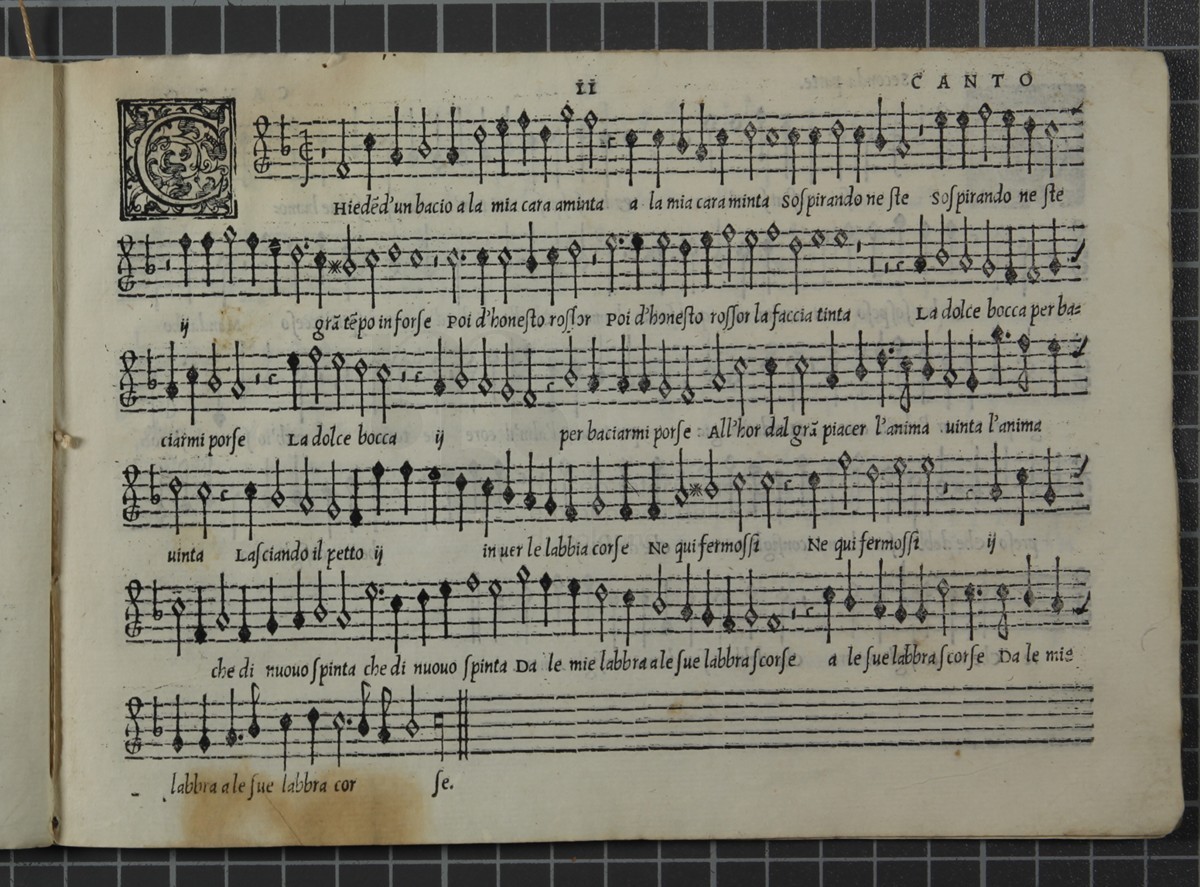 II CANTO
C Hiedẽd'un bacio a la mia cara aminta a la mia cara minta Soſpirando ne ſte Soſpirando ne ſte
ij grã tẽpo in forſe Poi d'honeſto roſſor Poi d'honeſto roſſor la faccia tinta La dolce bocca per ba-
ciarmi porſe La dolce bocca ij per baciarmi porſe All'hor dal grã piacer l'anima uinta l'anima
uinta Laſciando il petto ij in uer le labbia corſe Ne qui fermoſſi Ne qui fermoſſi ij
che di nuouo ſpinta che di nuouo ſpinta Da le mie labbra a le ſue labbra ſcorſe a le ſue labbra ſcorſe Da le mie
labbra a le ſue labbra cor ſe.